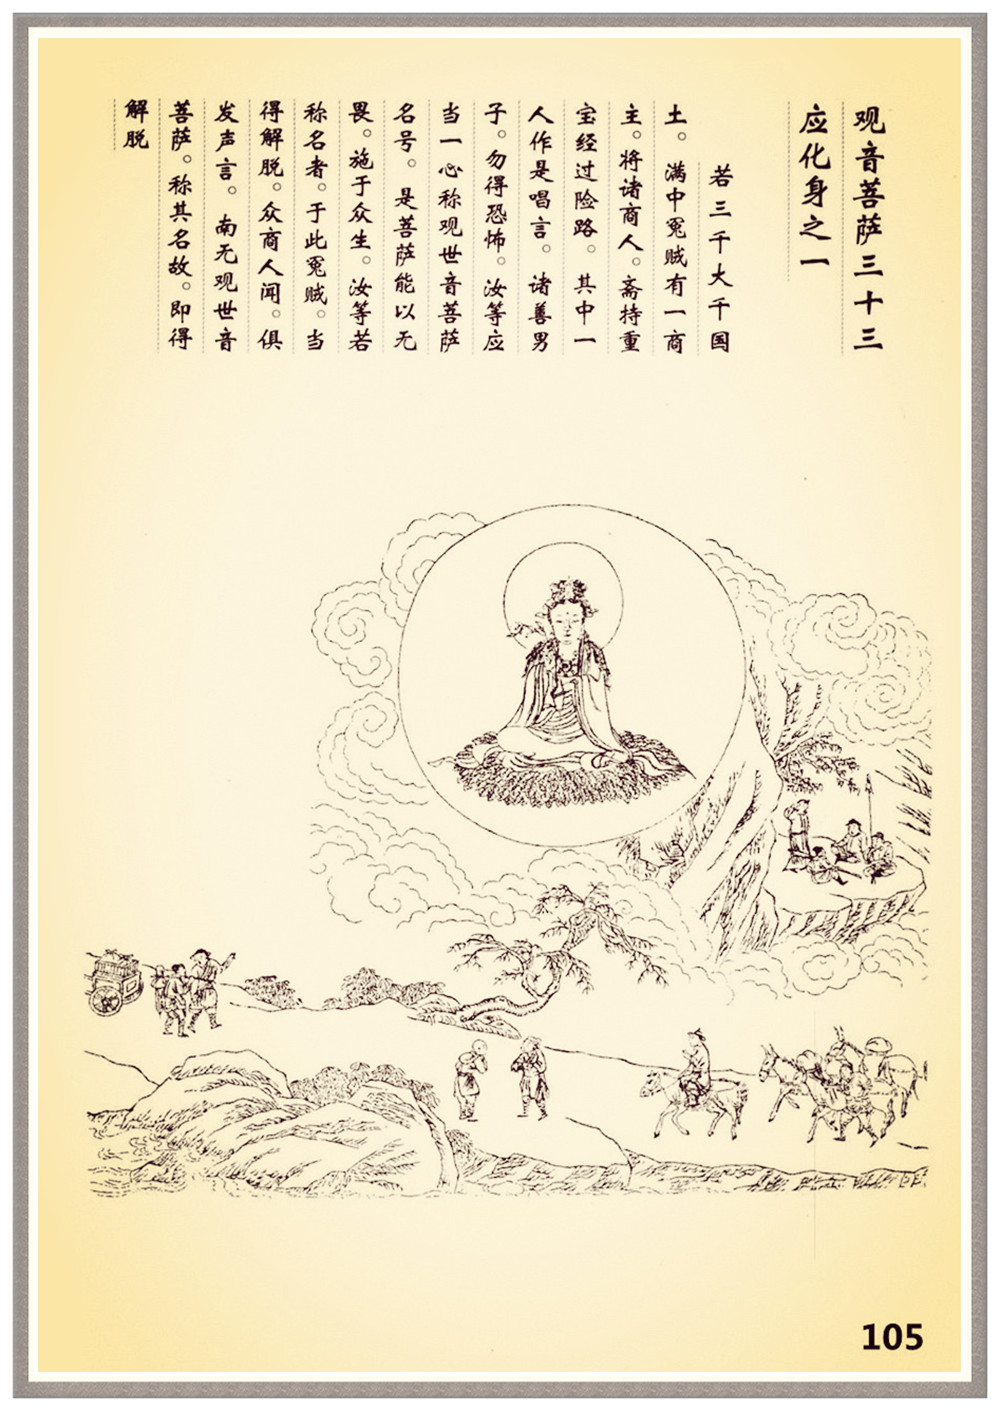 观音菩萨三十三
应化身之一
若三千大千国
土。满中冤贼有一商
主。将诸商人。斋持重
宝经过险路。其中一
人作是唱言。诸善男
子。勿得恐怖。汝等应
当一心称观世音菩萨
名号。是菩萨能以无
畏。施于众生。汝等若
称名者。于此冤贼。当
得解脱。众商人闻。俱
发声言。南无观世音
菩萨。称其名故。即得
解脱
105